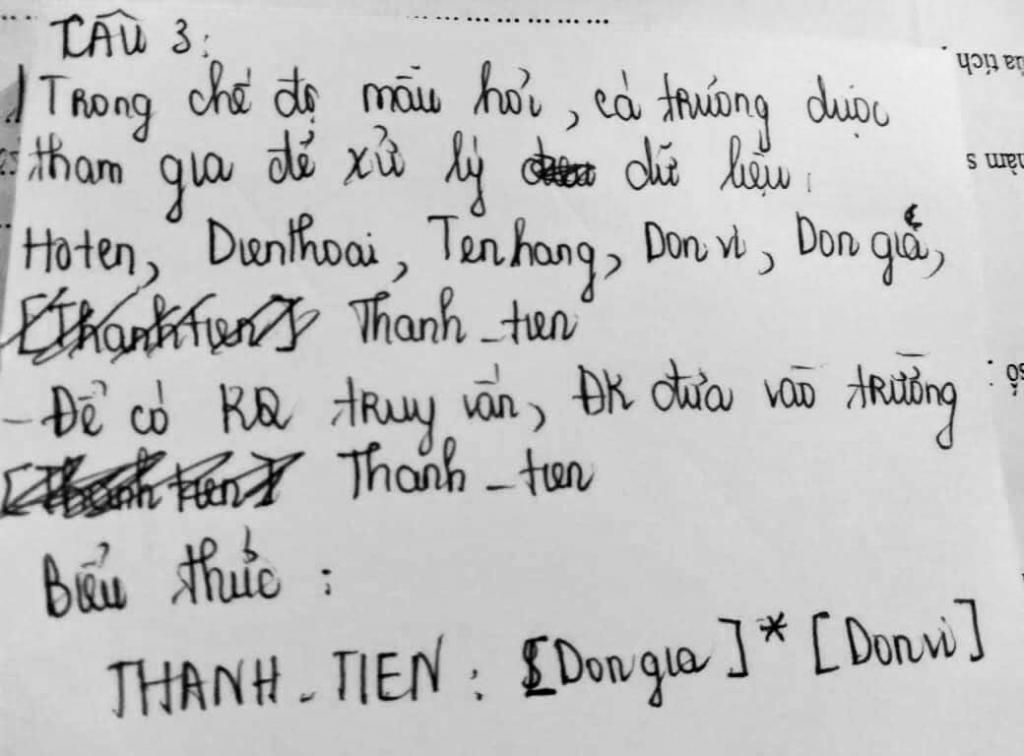 CÂU 3:
Trong chế độ mẫu hỏi, cá trường được
tham gia để xử lý dữ liệu:
Hoten, Dienthoai, Tenhang, Donvi, Dongiá,
[Thanhtien] Thanh_tien
- Để có KQ truy vấn, ĐK đưa vào trường
[Thanhtien] Thanh_tien
Biểu thức:
THANH_TIEN: [Dongia]*[Donvi]
ủa tích
hàm s
số: